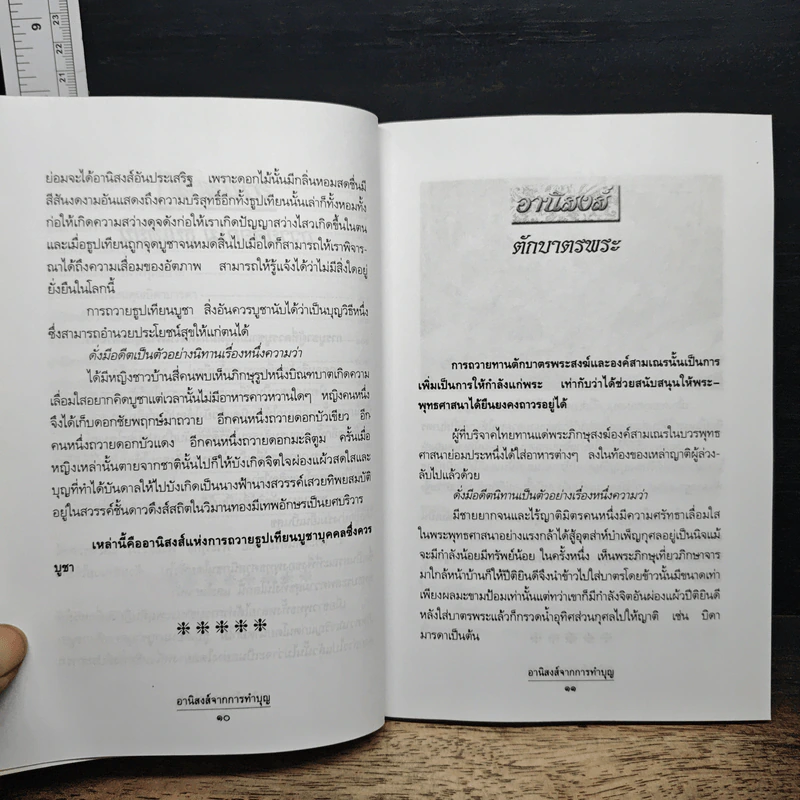 9
23
22
21
ย่อมจะได้อานิสงส์อันประเสริฐ เพราะดอกไม้นั้นมีกลิ่นหอมสดชื่นมี
สีสันงดงามอันแสดงถึงความบริสุทธิ์อีกทั้งธูปเทียนนั้นเล่าก็ทั้งหอมทั้ง
ก่อให้เกิดความสว่างดุจดังก่อให้เราเกิดปัญญาสว่างไสวเกิดขึ้นในตน
และเมื่อธูปเทียนถูกจุดบูชาจนหมดสิ้นไปเมื่อใดก็สามารถให้เราพิจาร-
ณาได้ถึงความเสื่อมของอัตภาพ สามารถให้รู้แจ้งได้ว่าไม่มีสิ่งใดอยู่
ยั่งยืนในโลกนี้
การถวายธูปเทียนบูชา สิ่งอันควรบูชานับได้ว่าเป็นบุญวิธีหนึ่ง
ซึ่งสามารถอำนวยประโยชน์สุขให้แก่ตนได้
ดั่งมีอดีตเป็นตัวอย่างนิทานเรื่องหนึ่งความว่า
ได้มีหญิงชาวบ้านสี่คนพบเห็นภิกษุรูปหนึ่งบิณฑบาตเกิดความ
เลื่อมใสอยากคิดบูชาแต่เวลานั้นไม่มีอาหารคาวหวานใดๆ หญิงคนหนึ่ง
จึงได้เก็บดอกชัยพฤกษ์มาถวาย อีกคนหนึ่งถวายดอกบัวเขียว อีก
คนหนึ่งถวายดอกบัวแดง อีกคนหนึ่งถวายดอกมะลิตูม ครั้นเมื่อ
หญิงเหล่านั้นตายจากชาตินั้นไปก็ให้บังเกิดจิตใจผ่องแผ้วสดใสและ
บุญที่ทำได้บันดาลให้ไปบังเกิดเป็นนางฟ้านางสวรรค์เสวยทิพยสมบัติ
อยู่ในสวรรค์ชั้นดาวดึงส์สถิตในวิมานทองมีเทพอักษรเป็นยศบริวาร
เหล่านี้คืออานิสงส์แห่งการถวายธูปเทียนบูชาบุคคลซึ่งควร
บูชา
อานิสงส์จากการทำบุญ
๑๐
อานิสงส์
ตักบาตรพระ
การถวายทานตักบาตรพระสงฆ์และองค์สามเณรนั้นเป็นการ
เพิ่มเป็นการให้กำลังแก่พระ เท่ากับว่าได้ช่วยสนับสนุนให้พระ-
พุทธศาสนาได้ยืนยงคงถาวรอยู่ได้
ผู้ที่บริจาคไทยทานแด่พระภิกษุสงฆ์องค์สามเณรในบวรพุทธ
ศาสนาย่อมประหนึ่งได้ใส่อาหารต่างๆ ลงในท้องของเหล่าญาติผู้ล่วง-
ลับไปแล้วด้วย
ดั่งมีอดีตนิทานเป็นตัวอย่างเรื่องหนึ่งความว่า
มีชายยากจนและไร้ญาติมิตรคนหนึ่งมีความศรัทธาเลื่อมใส
ในพระพุทธศาสนาอย่างแรงกล้าได้สู้อุตส่าห์บำเพ็ญกุศลอยู่เป็นนิจแม้
จะมีกำลังน้อยมีทรัพย์น้อย ในครั้งหนึ่ง เห็นพระภิกษุเที่ยวภิกขาจาร
มาใกล้หน้าบ้านก็ให้ปีติยินดีจึงนำข้าวไปใส่บาตรโดยข้าวนั้นมีขนาดเท่า
เพียงผลมะขามป้อมเท่านั้นแต่ทว่าเขาก็มีกำลังจิตอันผ่องแผ้วปีติยินดี
หลังใส่บาตรพระแล้วก็กรวดน้ำอุทิศส่วนกุศลไปให้ญาติ เช่น บิดา
มารดาเป็นต้น
อานิสงส์จากการทำบุญ
๑๑